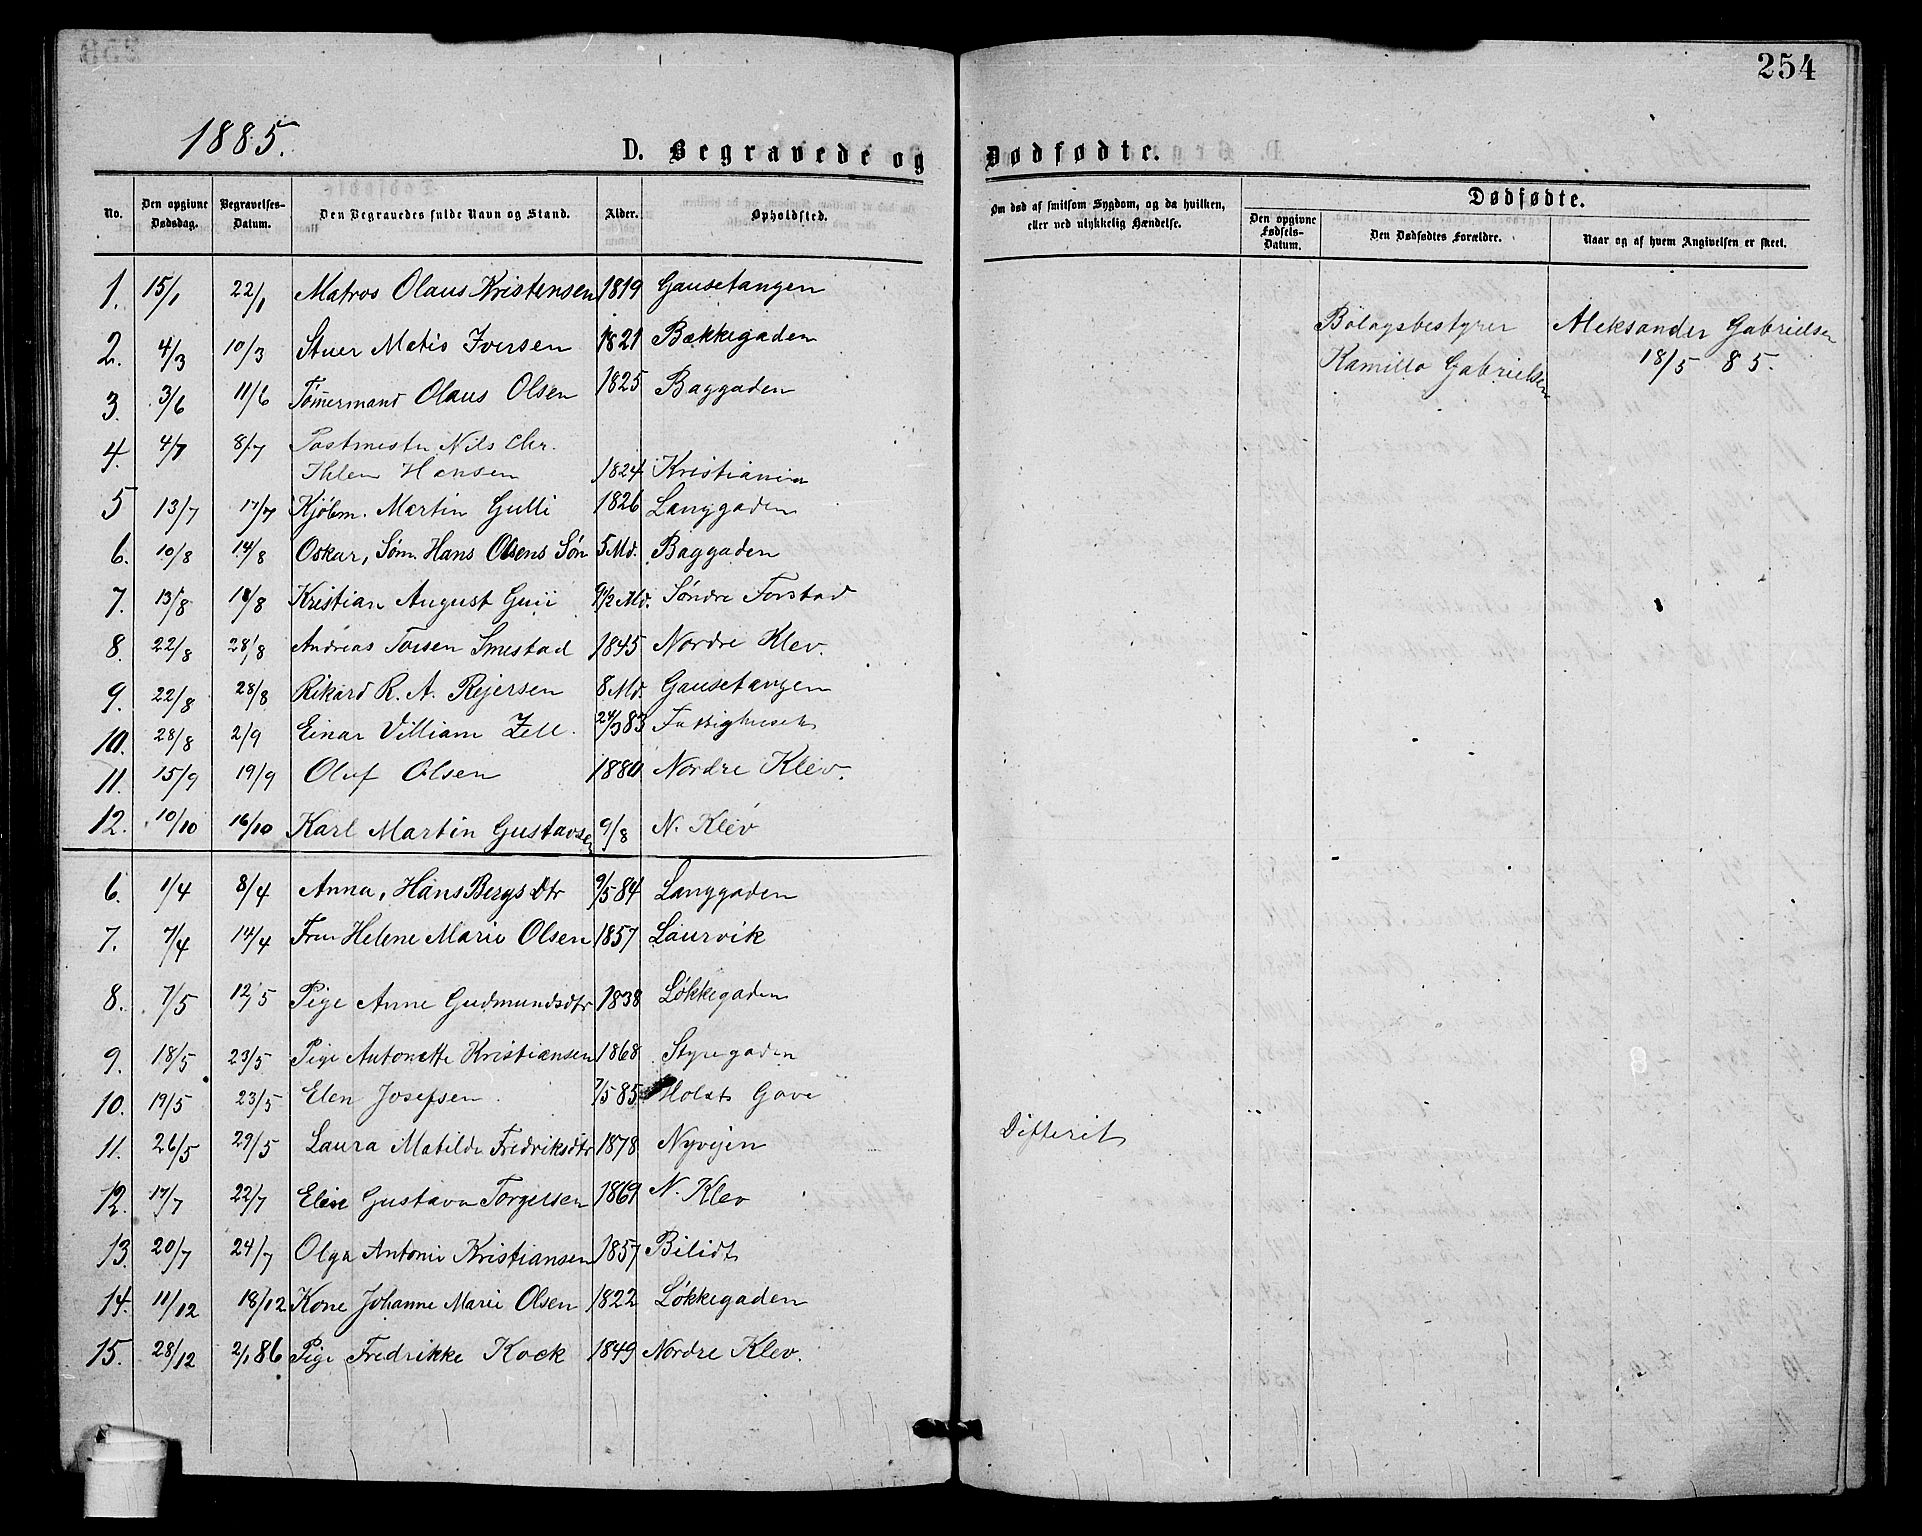 254
1885.
D. Begravede og Dødfødte.
No. Den opgivne Dødsdag. Begravelses-Datum. Den Begravedes fulde Navn og Stand. Alder. Opholdsted. Om død af smitsom Sygdom, og da hvilken, eller ved ulykkelig Hændelse. Dødfødte. Den opgivne Fødsels-Datum. Den Dødfødtes Forældre. Naar og af hvem Angivelsen er skeet.
1. 15/1 22/1 Matros Olaus Kristensen 1819 Gausetangen
Bolagsbestyrer Aleksander Gabrielsen
2. 4/3 10/3 Stuer Matis Iversen 1821 Bakkegaden
Kamillo Gabrielsen 18/5 85.
3. 3/6 11/6 Tømmermand Olaus Olsen 1825 Baggaden
4. 4/7 8/7 Postmester Nils Chr.
Ihlen Hansen 1824 Kristiania
5 13/7 17/7 Kjøbm. Martin Gulli 1826 Langgaden
6. 10/8 14/8 Oskar, Søm. Hans Olsens Søn 5 Md. Baggaden
7. 13/8 18/8 Kristian August 9 1/2 Md. Søndre Forstad
8. 22/8 28/8 Andreas Smestad 1845 Nordre Klev.
9. 22/8 28/8 Rikard R. A. Rejersen 8 Md. Gausetangen
10. 28/8 2/9 Einar Villiam Zell. 24/3 83 Fattighuset
11. 15/9 19/9 Oluf Olsen 1880 Nordre Klev.
12. 10/10 16/10 Karl Martin Gustavsen 9/8 N. Klev
6. 1/4 8/4 Anna, Hans Bergs Dtr 9/5 84 Langgaden
7. 7/4 14/4 Fru Helene Marie Olsen 1857 Laurvik
8. 7/5 12/5 Pige Anne Gudmundsdtr 1838 Løkkegaden
9. 18/5 23/5 Pige Antonette Kristiansen 1868 Styregaden
10. 19/5 23/5 Elen Josefsen. 7/5 85 Holsts Gave
11. 26/5 29/5 Laura Matilde Fredriksdtr 1878 Nyvejen Difterit
12. 17/7 22/7 Elise Gustava Torgersen 1869 N. Klev
13. 20/7 24/7 Olga Antonie Kristiansen 1857 Bilidt
14. 11/12 18/12 Kone Johanne Marie Olsen 1822 Løkkegaden
15. 28/12 2/1 86 Pige Fredrikke Kock 1849 Nordre Klev.